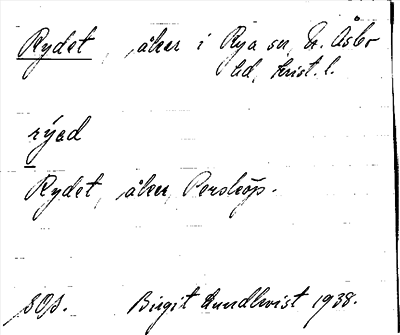 Rydet, åker i Rya sn, N. Åsbo
hd, Krist. l.
rýed
Rydet, åker, Perstorp.
SOp. Birgit Lundkvist 1938.